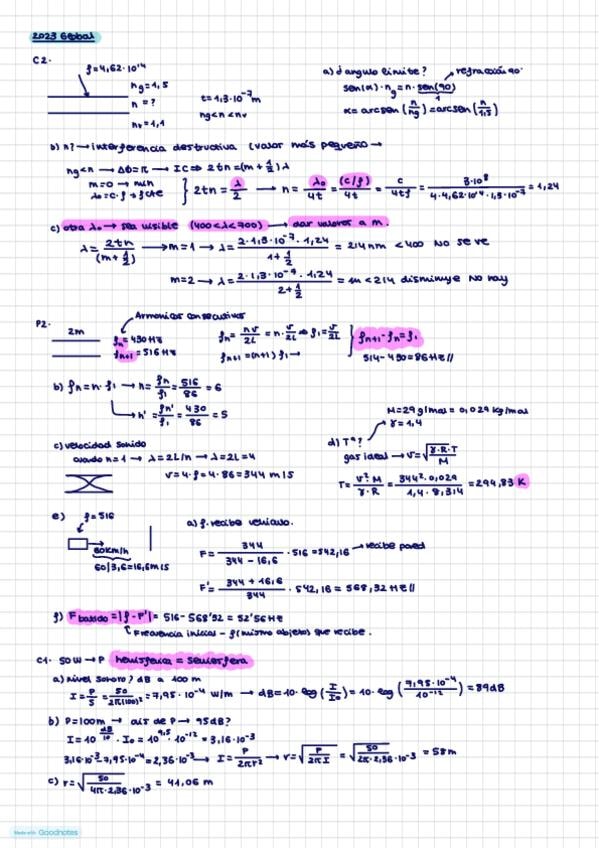 2023 Global
C2.
f=4,62·10¹⁴
ng=1,5
n=?
nv=1,1
t=1,3·10⁻⁷m
ng<n<nv
a) ¿ángulo límite? → refracción 90°
sen(α)·ng=n·sen(90)
1
α=arcsen(n/ng)=arcsen(n/1,5)
b) n? → interferencia destructiva (valor más pequeño →
ng<n → Δϕ=π → IC ⇒ 2tn=(m+1/2)λ
m=0 → min
λ₀=c·f → fcte
} 2tn=λ/2 → n=λ₀/4t=(c/f)/4t=c/4tf=3·10⁸/4·4,62·10¹⁴·1,3·10⁻⁷=1,24
c) otra λ₀ → sea visible (400<λ<700) → dar valores a m.
λ=2tn/(m+1/2) → m=1 → λ=2·1,3·10⁻⁷·1,24/1+1/2=214nm <400 No se ve
m=2 → λ=2·1,3·10⁻⁷·1,24/2+1/2= <214 disminuye No hay
P2.
2m
Armónicos consecutivos
fn=430Hz
fn+1=516Hz
fn=nv/2L=n·v/2L ⇒ f₁=v/2L
fn+1=(n+1)f₁ →
} fn+1-fn=f₁
514-430=86Hz//
b) fn=n·f₁ → n=fn/f₁=516/86=6
n'=fn'/f₁=430/86=5
c) velocidad sonido
cuando n=1 → λ=2L/n → λ=2L=4
v=λ·f=4·86=344m/s
M=29g/mol=0,029kg/mol
γ=1,4
d) Tª?
gas ideal → v=√(γ·R·T/M)
T=v²·M/γ·R=344²·0,029/1,4·8,314=294,83 K
e) f=516
60km/h
60/3,6=16,6m/s
a) f. recibe vehículo.
F=344/344-16,6·516=542,16 → recibe pared
F'=344+16,6/344·542,16=568,32Hz//
f) F batido=|f-F'|=516-568'32=52'56Hz
Frecuencia inicial - f(mismo objeto) que recibe.
C1. 50W → P hemisférica = semiesfera
a) nivel sonoro? dB a 100m
I=P/S=50/2π(100)²=7,95·10⁻⁴ W/m → dB=10·log(I/I₀)=10·log(7,95·10⁻⁴/10⁻¹²)=89dB
b) P=100m → de P → 95dB?
I=10^(dB/10)·I₀=10^9,5·10⁻¹²=3,16·10⁻³
3,16·10⁻³-7,95·10⁻⁴=2,36·10⁻³ → I=P/2πr² → r=√(P/2πI)=√(50/2π·2,36·10⁻³)=58m
c) r=√(50/4π·2,36·10⁻³)=41,06m
Made with Goodnotes